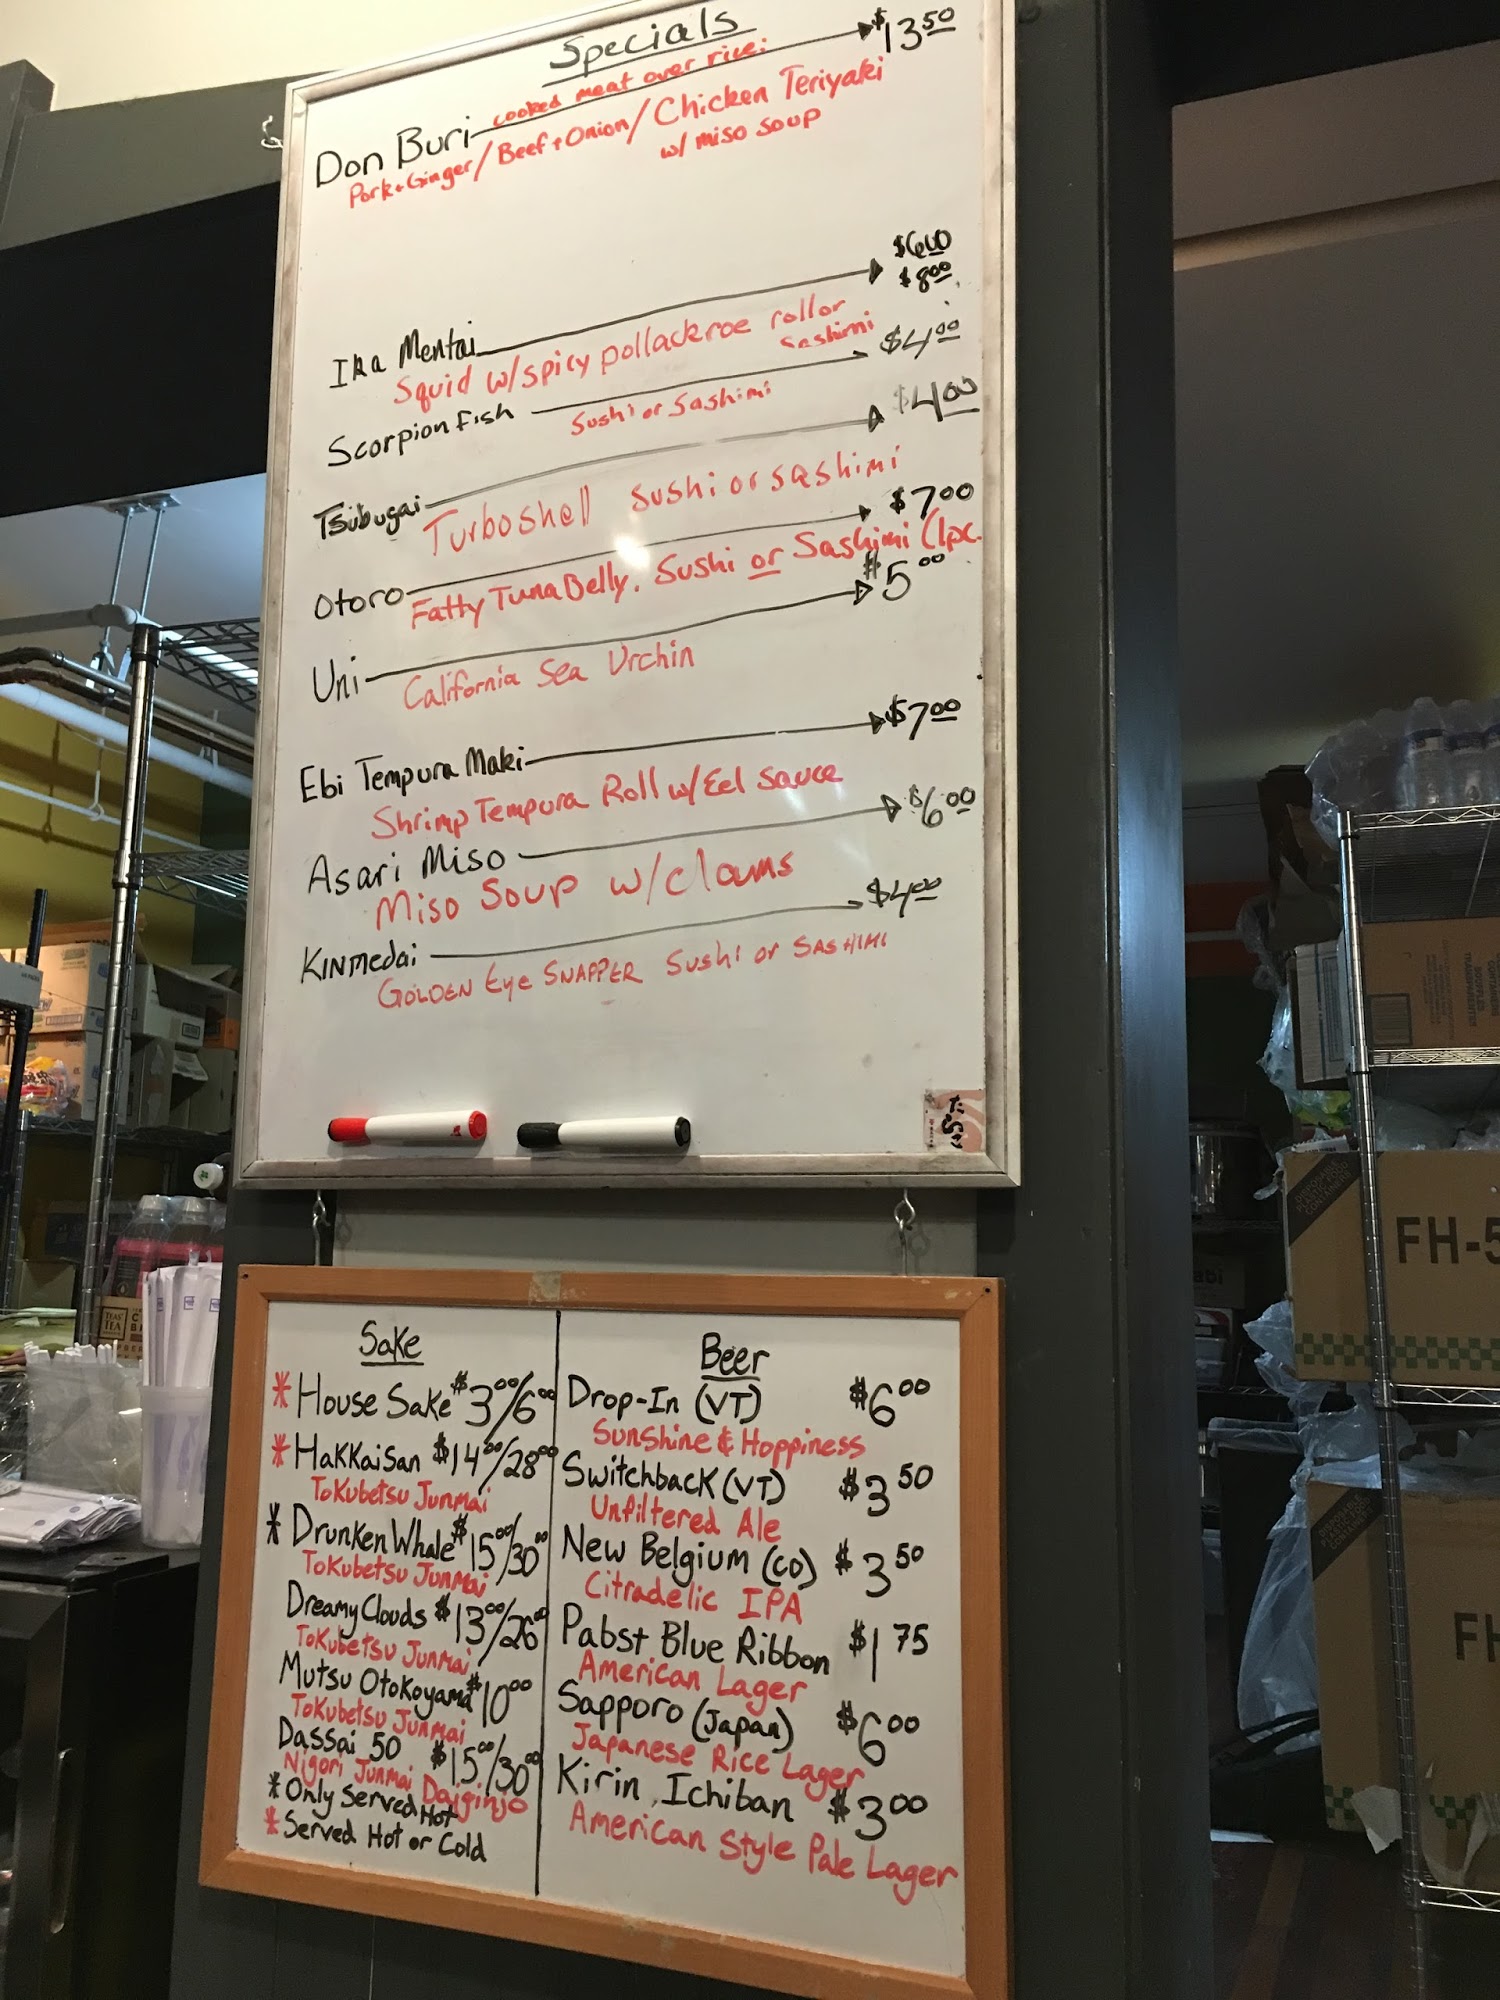 Specials
Don Buri cooked meat over rice: $13.50
Pork+Ginger/Beef+Onion/Chicken Teriyaki
w/ miso soup
Ika Mentai $6.00
$8.00
Squid w/spicy pollackroe roll or
Sashimi
Scorpion Fish $4.00
Sushi or Sashimi
Tsubugai $4.00
Turboshell Sushi or sashimi
Otoro $7.00
Fatty Tuna Belly. Sushi or Sashimi (1pc.
Uni $5.00
California Sea Urchin
Ebi Tempura Maki $7.00
Shrimp Tempura Roll w/Eel Sauce
Asari Miso $6.00
Miso Soup w/clams
Kinmedai $4.00
Golden Eye Snapper Sushi or Sashimi
Sake
*House Sake $3.00/6.00
*Hakkaisan $14.00/28.00
Tokubetsu Junmai
*Drunken Whale $15.00/30.00
Tokubetsu Junmai
Dreamy Clouds $13.00/26.00
Tokubetsu Junmai
Mutsu Otokoyama $10.00
Tokubetsu Junmai
Dassai 50 $15.00/30.00
Nigori Junmai Daiginjo
*Only Served Hot
*Served Hot or Cold
Beer
Drop-In (VT) $6.00
Sunshine & Hoppiness
Switchback (VT) $3.50
Unfiltered Ale
New Belgium (CO) $3.50
Citradelic IPA
Pabst Blue Ribbon $1.75
American Lager
Sapporo (Japan) $6.00
Japanese Rice Lager
Kirin Ichiban $3.00
American Style Pale Lager
FH-5
FH